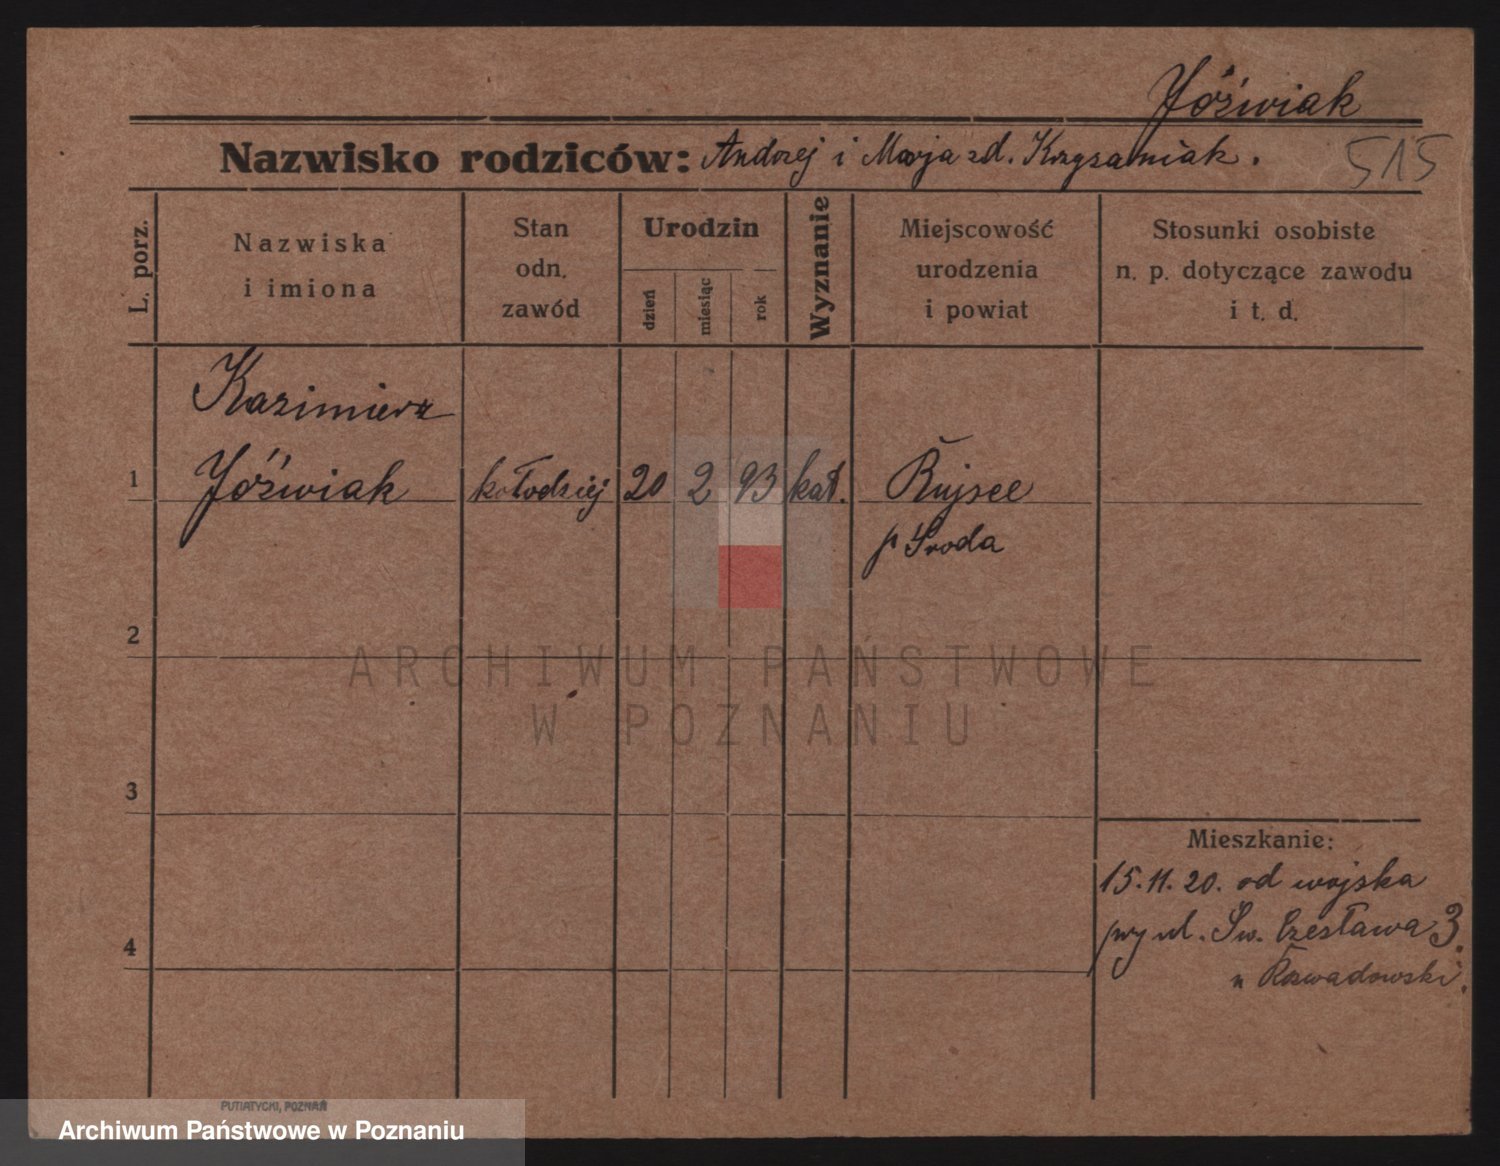 Jóźwiak
Nazwisko rodziców: Andrzej i Marja zd. Krzyżaniak.
515
L. porz.
Nazwiska
i imiona
Stan
odn.
zawód
Urodzin
dzień
miesiąc
rok
Wyznanie
Miejscowość
urodzenia
i powiat
Stosunki osobiste
n. p. dotyczące zawodu
i t. d.
Kazimierz
1 Jóźwiak kołodziej 20 2 93 kat.
p Środa
2
ARCHIWUM PAŃSTWOWE
W POZNANIU
3
Mieszkanie:
15.11.20. od wojska
przy ul. Św. Czesława 3.
4
u Rozwadowski.
PUTIATYCKI, POZNAŃ
Archiwum Państwowe w Poznaniu